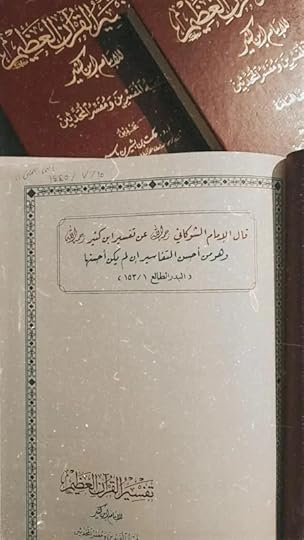 تفسير القرآن العظيم
للإمام ابن كثير
تفسير القرآن العظيم
للإمام ابن كثير
المفسرين ومفسر المحدثين
١٤٤٥ / ٧ / ١٥
قال الإمام الشوكاني رحمه الله عن تفسير ابن كثير رحمه الله
وهو من أحسن التفاسير إن لم يكن أحسنها
« البدر الطالع ١ / ١٥٣ »
تفسير القرآن العظيم
للإمام ابن كثير
المفسرين ومفسر المحدثين